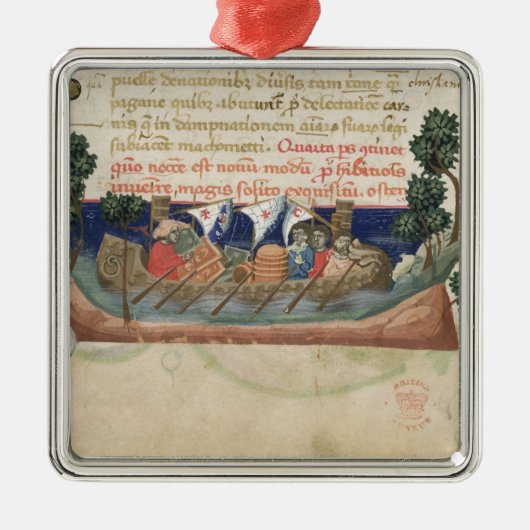 puelle de nationibȝ diuisis tam tane q̃
pagane quibȝ abutunt p̃ delectatiõe car
nis q̃ in dampnationem aĩaȝ suaȝ legi
subiacent machometti. Quarta ps ꝯtinet
quo necẽ est nouũ modũ p̃hibitiõis
inueĩre, magis solito exquisitũ osten
BRITISH
MUSEUM